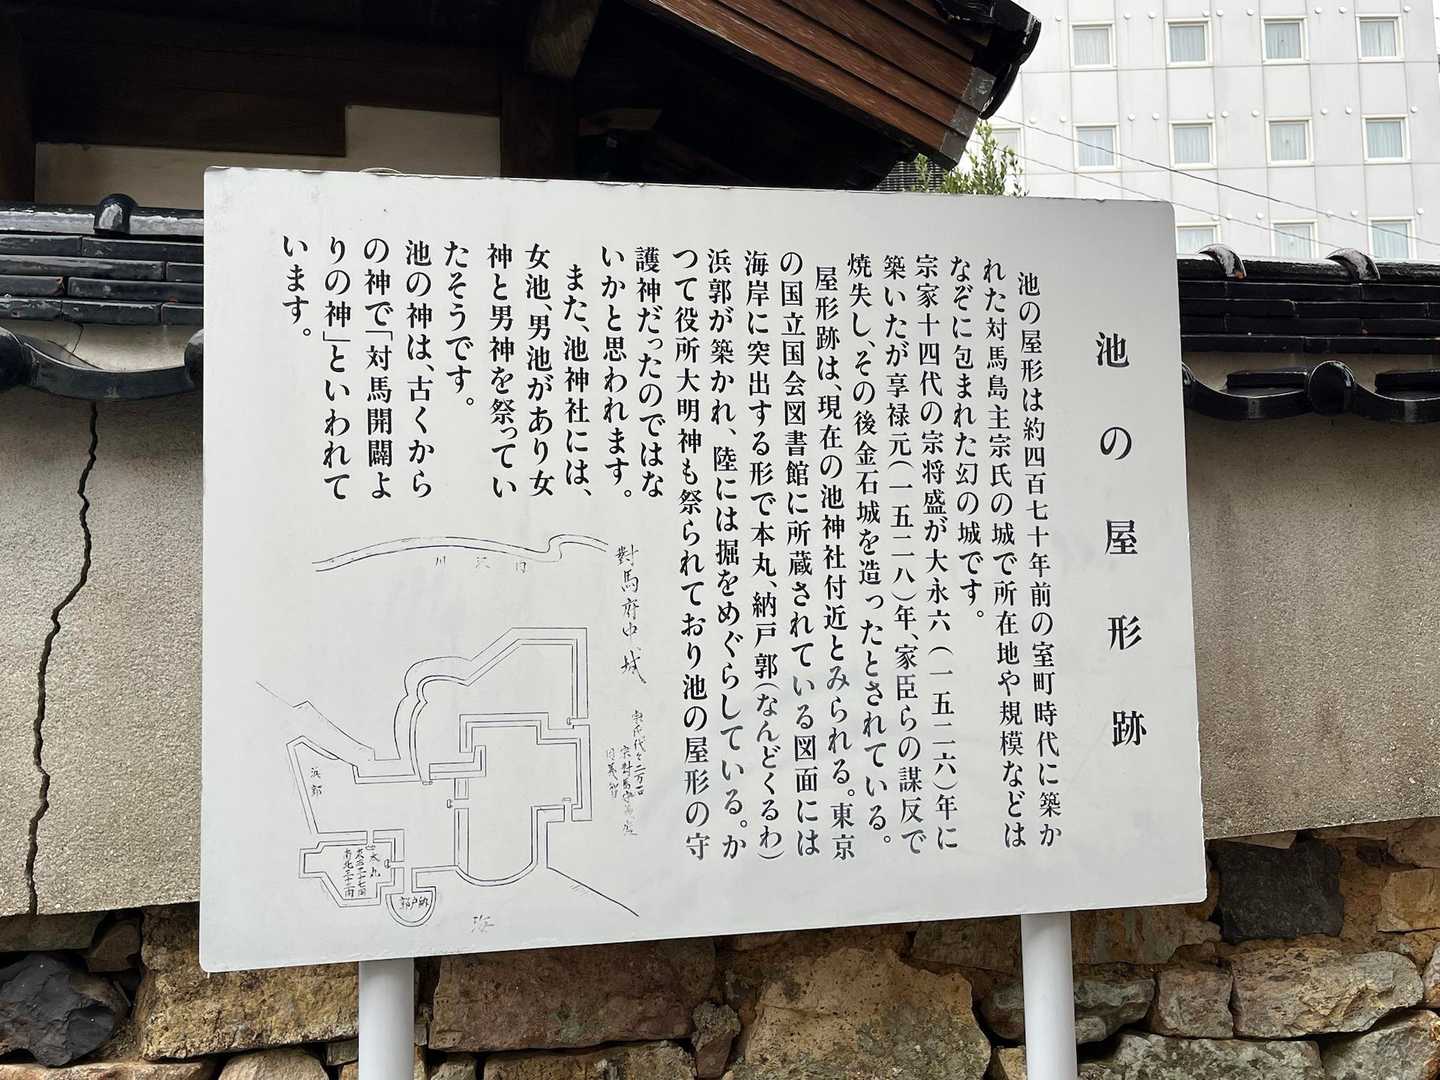 池の屋形跡
池の屋形は約四百七十年前の室町時代に築か
れた対馬島主宗氏の城で所在地や規模などは
なぞに包まれた幻の城です。
宗家十四代の宗将盛が大永六(一五二六)年に
築いたが享禄元(一五二八)年、家臣らの謀反で
焼失し、その後金石城を造ったとされている。
屋形跡は、現在の池神社付近とみられる。東京
の国立国会図書館に所蔵されている図面には
海岸に突出する形で本丸、納戸郭(なんどくるわ)
浜郭が築かれ、陸には堀をめぐらしている。か
つて役所大明神も祭られており池の屋形の守
護神だったのではな
いかと思われます。
また、池神社には、
女池、男池があり女
神と男神を祭ってい
たそうです。
池の神は、古くから
の神で「対馬開闢よ
りの神」といわれて
います。
對馬府中城
内沢川
浜郭
本丸
納戸郭
海